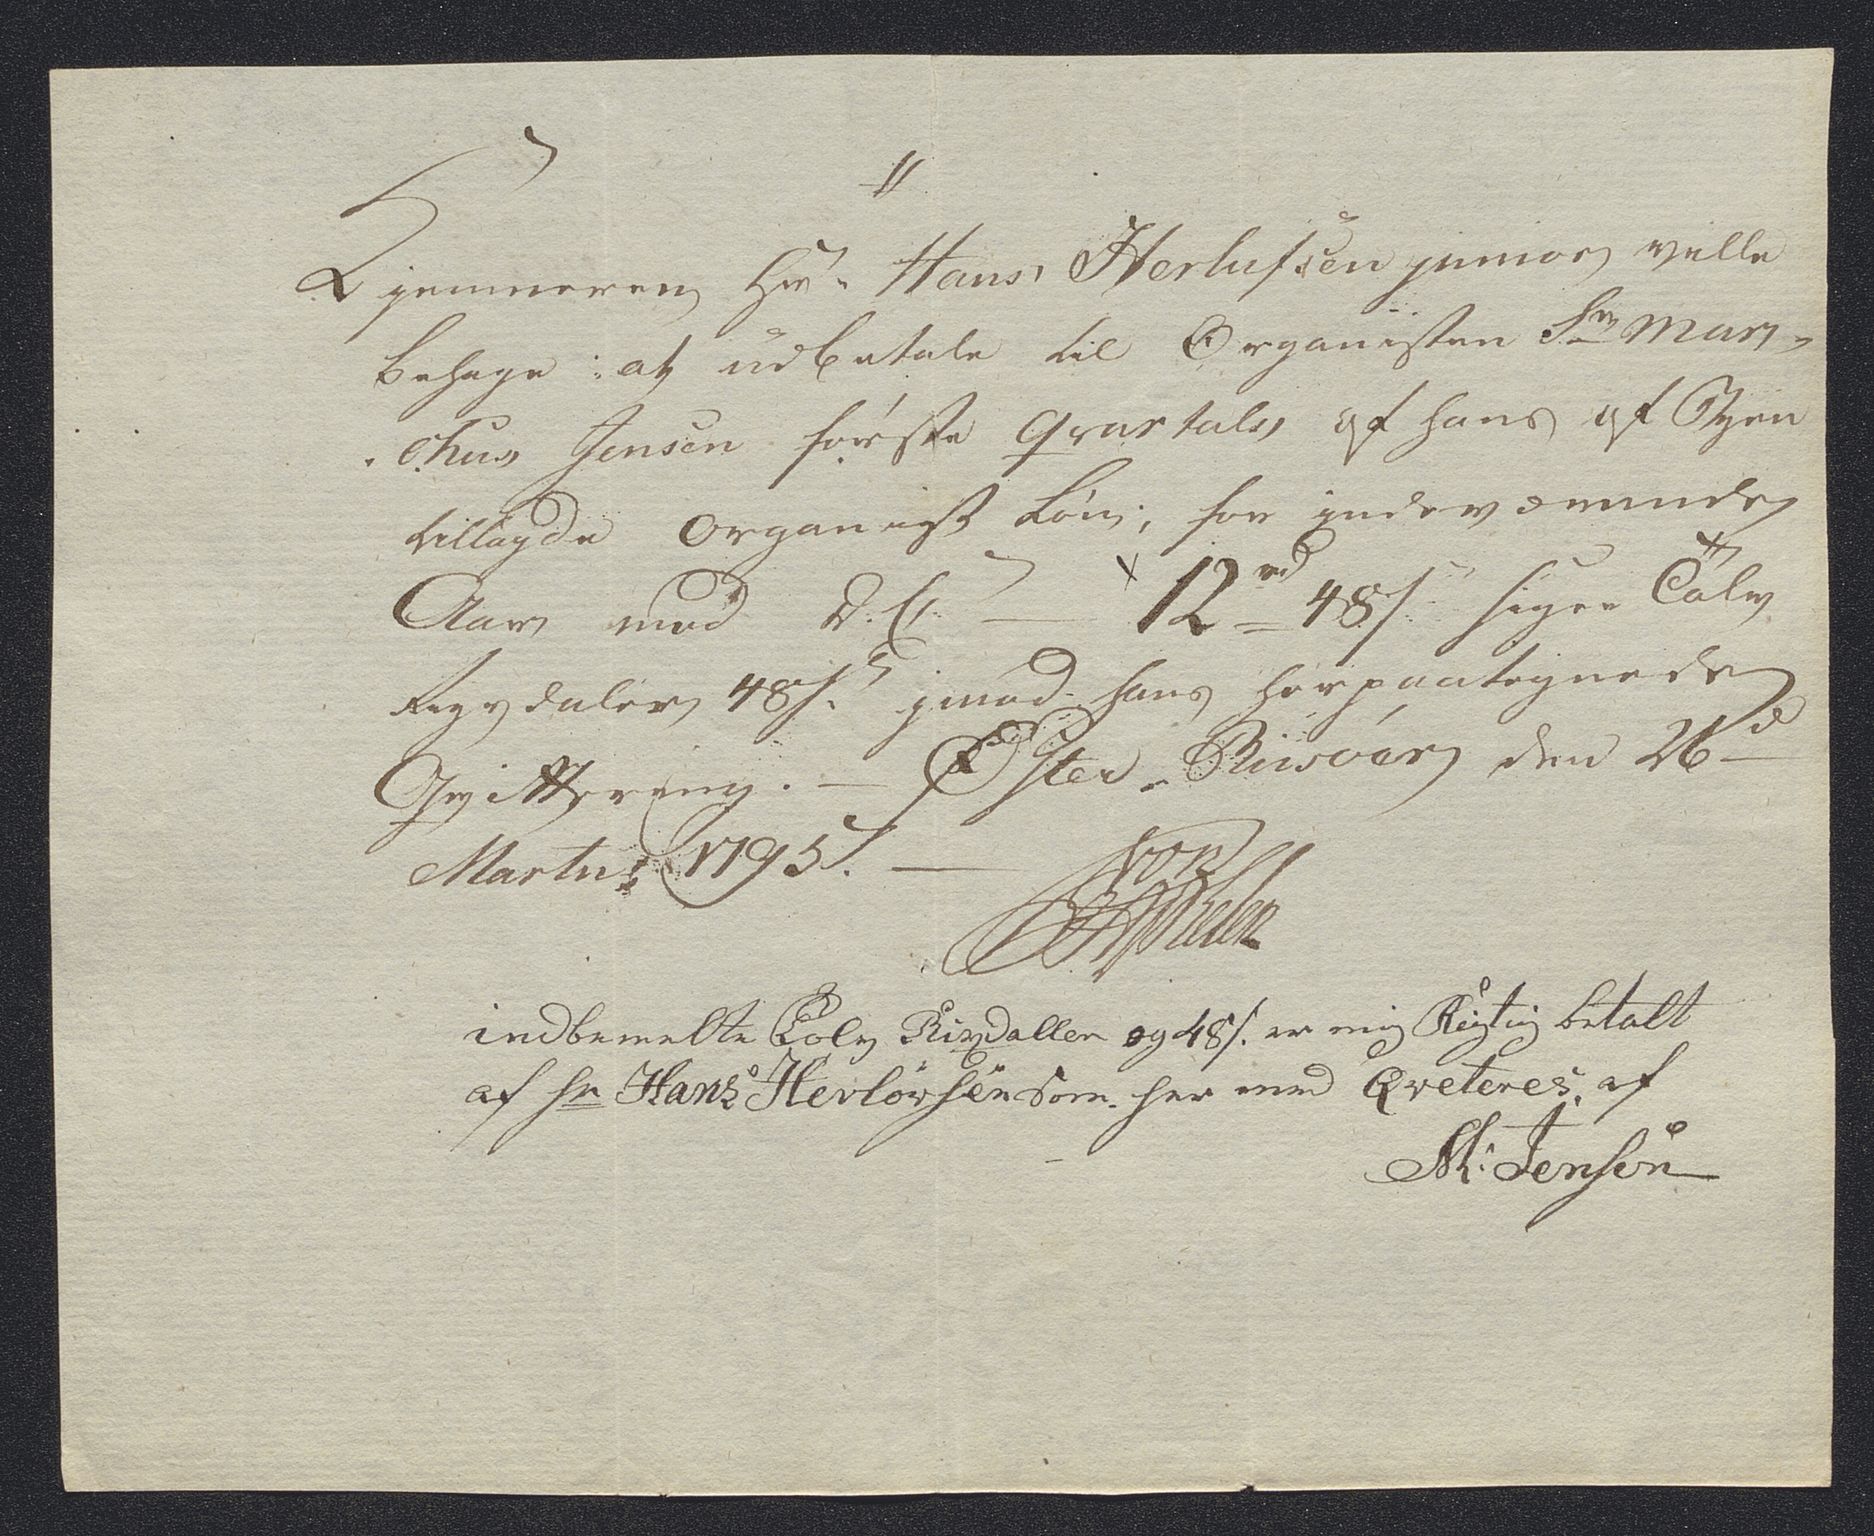 Kjemneren Hr. Hans Herlufsen junior ville
behage: at udbetale til Organisten Hr Mar-
chus Jensen förste Qvartals af hans af Byen
tillagde Organist Lön, for indeværende
Aar med D. C. — 12 rd 48 s. siger Tolv
Rigsdaler 48 s. imod hans herpaategnede
Qvittering. — Öster-Riisöer den 26 d
Martii 1795. —
indbemelte Tolv Rixdaller og 48 s. er mig Rigtig betalt
af Hr Hans Herlovsen Som her med Qveteres, af
M: Jensen